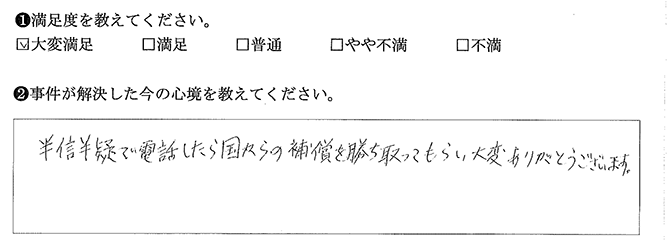 ❶満足度を教えてください。
☑大変満足 □満足 □普通 □やや不満 □不満
❷事件が解決した今の心境を教えてください。
半信半疑で電話したら国からの補償を勝ち取ってもらい大変ありがとうございます。